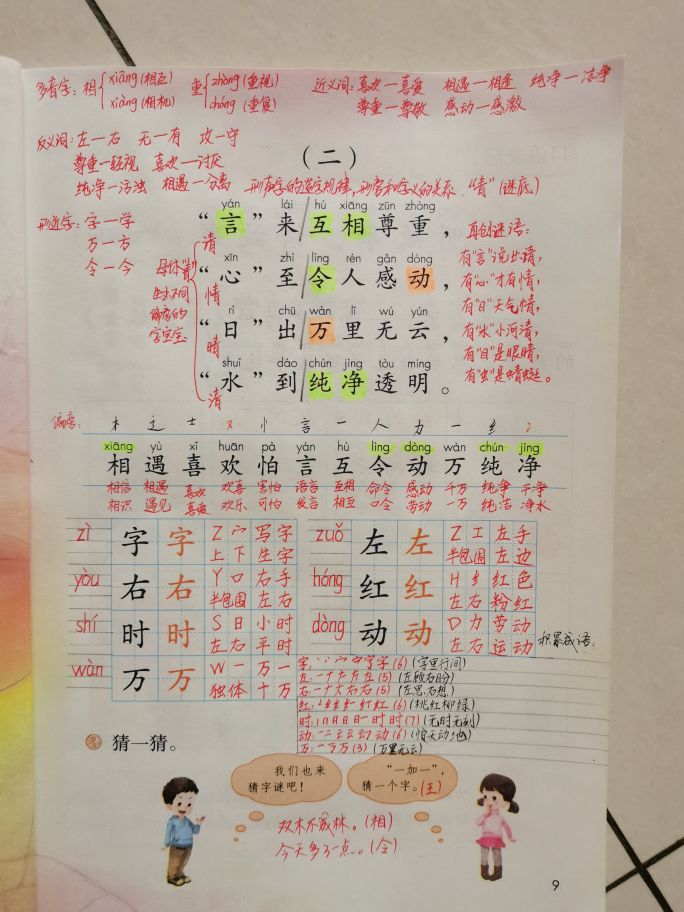 多音字：相 xiāng(相互) 重 zhòng(重视) 近义词：喜欢一喜爱 相遇一相逢 纯净一洁净
xiàng(相机) chóng(重复) 尊重一尊敬 感动一感激
反义词：左一右 无一有 攻一守
尊重一轻视 喜欢一讨厌
纯净一污浊 相遇一分离 形声字的造字规律，形旁和字义的关系."青"(谜底)
（二）
形近字：字一学
万一方
令一今
母体"青"
生出不同
偏旁的
字宝宝
yán lái hù xiāng zūn zhòng
“言”来/互相尊重，
请
xīn zhì lìng rén gǎn dòng
“心”至/令人感动，
情
rì chū wàn lǐ wú yún
“日”出/万里无云，
晴
shuǐ dào chún jìng tòu míng
“水”到/纯净透明。
清
再创谜语：
有"言"说出请，
有"心"才有情，
有"日"天气晴，
有"水"小河清，
有"目"是眼睛，
有"虫"是蜻蜓。
偏旁： 木 辶 士 又 忄 言 一 人 力 一 纟 冫
xiāng yù xǐ huān pà yán hù lìng dòng wàn chún jìng
相 遇 喜 欢 怕 言 互 令 动 万 纯 净
相信 相遇 喜欢 欢喜 害怕 语言 互相 命令 感动 千万 纯净 干净
相识 遇见 喜爱 欢乐 可怕 发言 相互 口令 劳动 一万 纯洁 净水
zì 字 字 Z 宀 写字 zuǒ 左 左 Z 工 左手
上下 生字 半包围 左边
yòu 右 右 Y 口 右手 hóng 红 红 H 纟 红色
半包围 左右 左右 粉红
shí 时 时 S 日 小时 dòng 动 动 D 力 劳动
左右 平时 左右 运动
积累成语：
wàn 万 万 W 一 万一
独体 十万
(6) (字里行间)
(5) (左顾右盼)
(5) (左思右想)
(6) (桃红柳绿)
(7) (无时无刻)
(6) (惊天动地)
(3) (万里无云)
猜一猜。
我们也来
猜字谜吧！
“一加一”，
猜一个字。(王)
双木不成林。(相)
今天多了一点。(令)
9